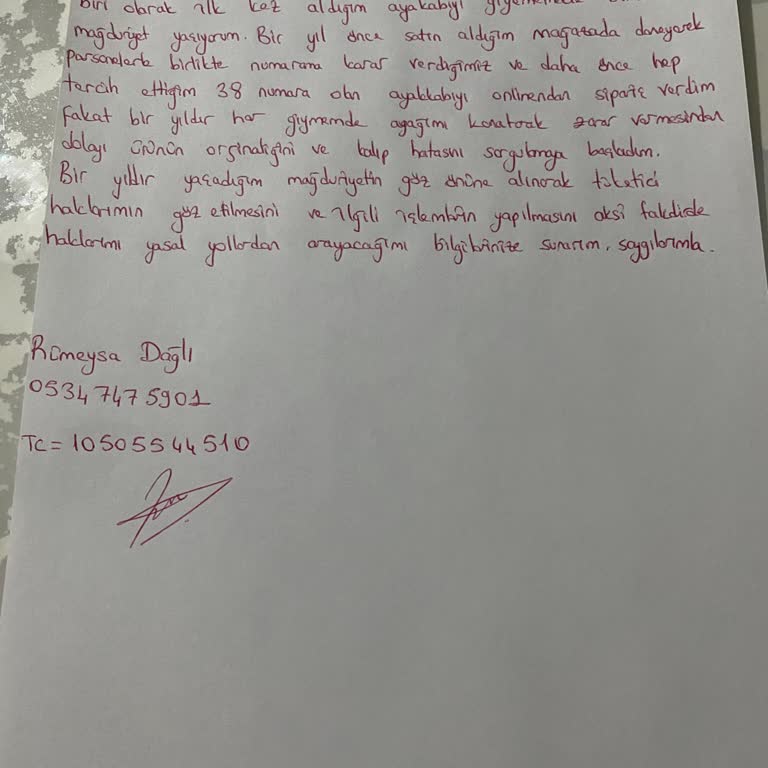 biri olarak ilk kez aldığım ayakabıyı
mağduriyet yaşıyorum. Bir yıl önce satın aldığım mağazada deneyerek
Parsonelerle birlikte numarama karar verdiğimiz ve daha önce hep
tercih ettiğim 38 numara olan ayakkabıyı onlinendan sipariş verdim
fakat bir yıldır her giymemde ayağımı kanatarak zarar vermesinden
dolayı ürünün orşinalığini ve kalıp hatasını sorgulamaya başladım.
Bir yıldır yaşadığım mağduriyetin göz önüne alınarak tüketici
haklarımın göz etilmesini ve ilgili işlemlerin yapılmasını aksi takdirde
haklarımı yasal yollardan arayacağımı bilgilerinize sunarım, saygılarımla.
Rümeysa Dağlı
0534 747 5901
TC = 10505544510